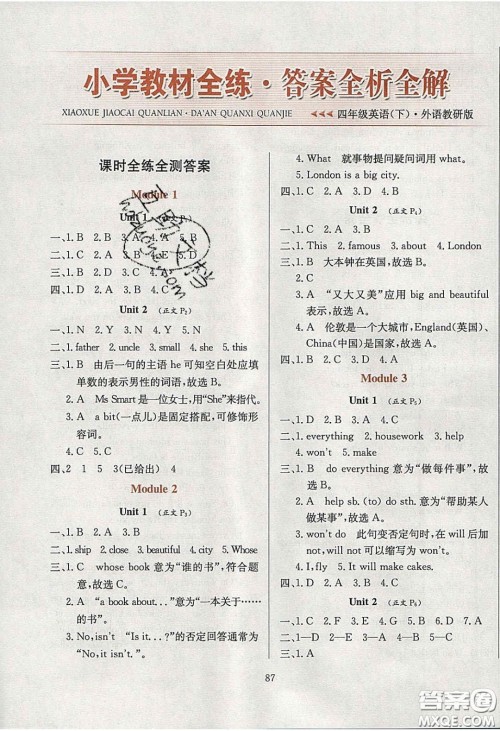 小学教材全练·答案全析全解
XIAOXUE JIAOCAI QUANLIAN·DA'AN QUANXI QUANJIE
四年级英语(下)·外语教研版
课时全练全测答案
Module 1
Unit 1 (正文 P₁)
一、1. B 2. B 3. A 4. A 5. B
二、1. C 2. A 3. B 4. E 5. D
四、1. D 2. A 3. B 4. C
Unit 2 (正文 P₂)
一、1. N 2. Y 3. N 4. Y 5. N
二、1. father 2. uncle 3. small 4. she 5. this
三、1. B 由后一句的主语 he 可知空白处应填
单数的表示男性的词语,故选 B。
2. A Ms Smart 是一位女士,用“She”来指代。
3. A a bit(一点儿)是固定搭配,可修饰形
容词。
四、2 1 5 3(已给出) 4
Module 2
Unit 1 (正文 P₃)
一、1. A 2. B 3. B
二、1. ship 2. close 3. beautiful 4. city 5. Whose
三、1. C whose book 意为“谁的书”,符合题
意,故选 C。
2. A “a book about...”意为“一本关于……
的书”。
3. No, isn't “Is it...?”的否定回答通常为
“No, it isn't.”。
4. What 就事物提问疑问词用 what。
5. London is a big city.
四、1. C 2. A 3. D 4. B
Unit 2 (正文 P₄)
一、1. This 2. famous 3. about 4. London
三、1. B 大本钟在英国,故选 B。
2. C
3. A “又大又美”应用 big and beautiful
表示,故选 A。
4. A 伦敦是一个大城市,England(英国)、
China(中国)是国家,故选 A。
四、1. B 2. D 3. D 4. A
Module 3
Unit 1 (正文 P₅)
一、1. A 2. B 3. A
二、1. everything 2. housework 3. help
4. won't 5. make
三、1. B do everything 意为“做每件事”,故
选 B。
2. A help sb. (to) do sth. 意为“帮助某人
做某事”,故选 A。
3. won't do 此句变否定句时,在 will 后加
not, will not 可以缩写为 won't。
4. I, fly 5. I will make cakes.
四、1. D 2. A 3. C 4. B
Unit 2 (正文 P₆)
一、1. C 2. B 3. A 4. A 5. B
二、1—D 2—A 3—B 4—E 5—C
三、1. B 2. A 3. A 4. C
87
答案圈
MXQE.COM